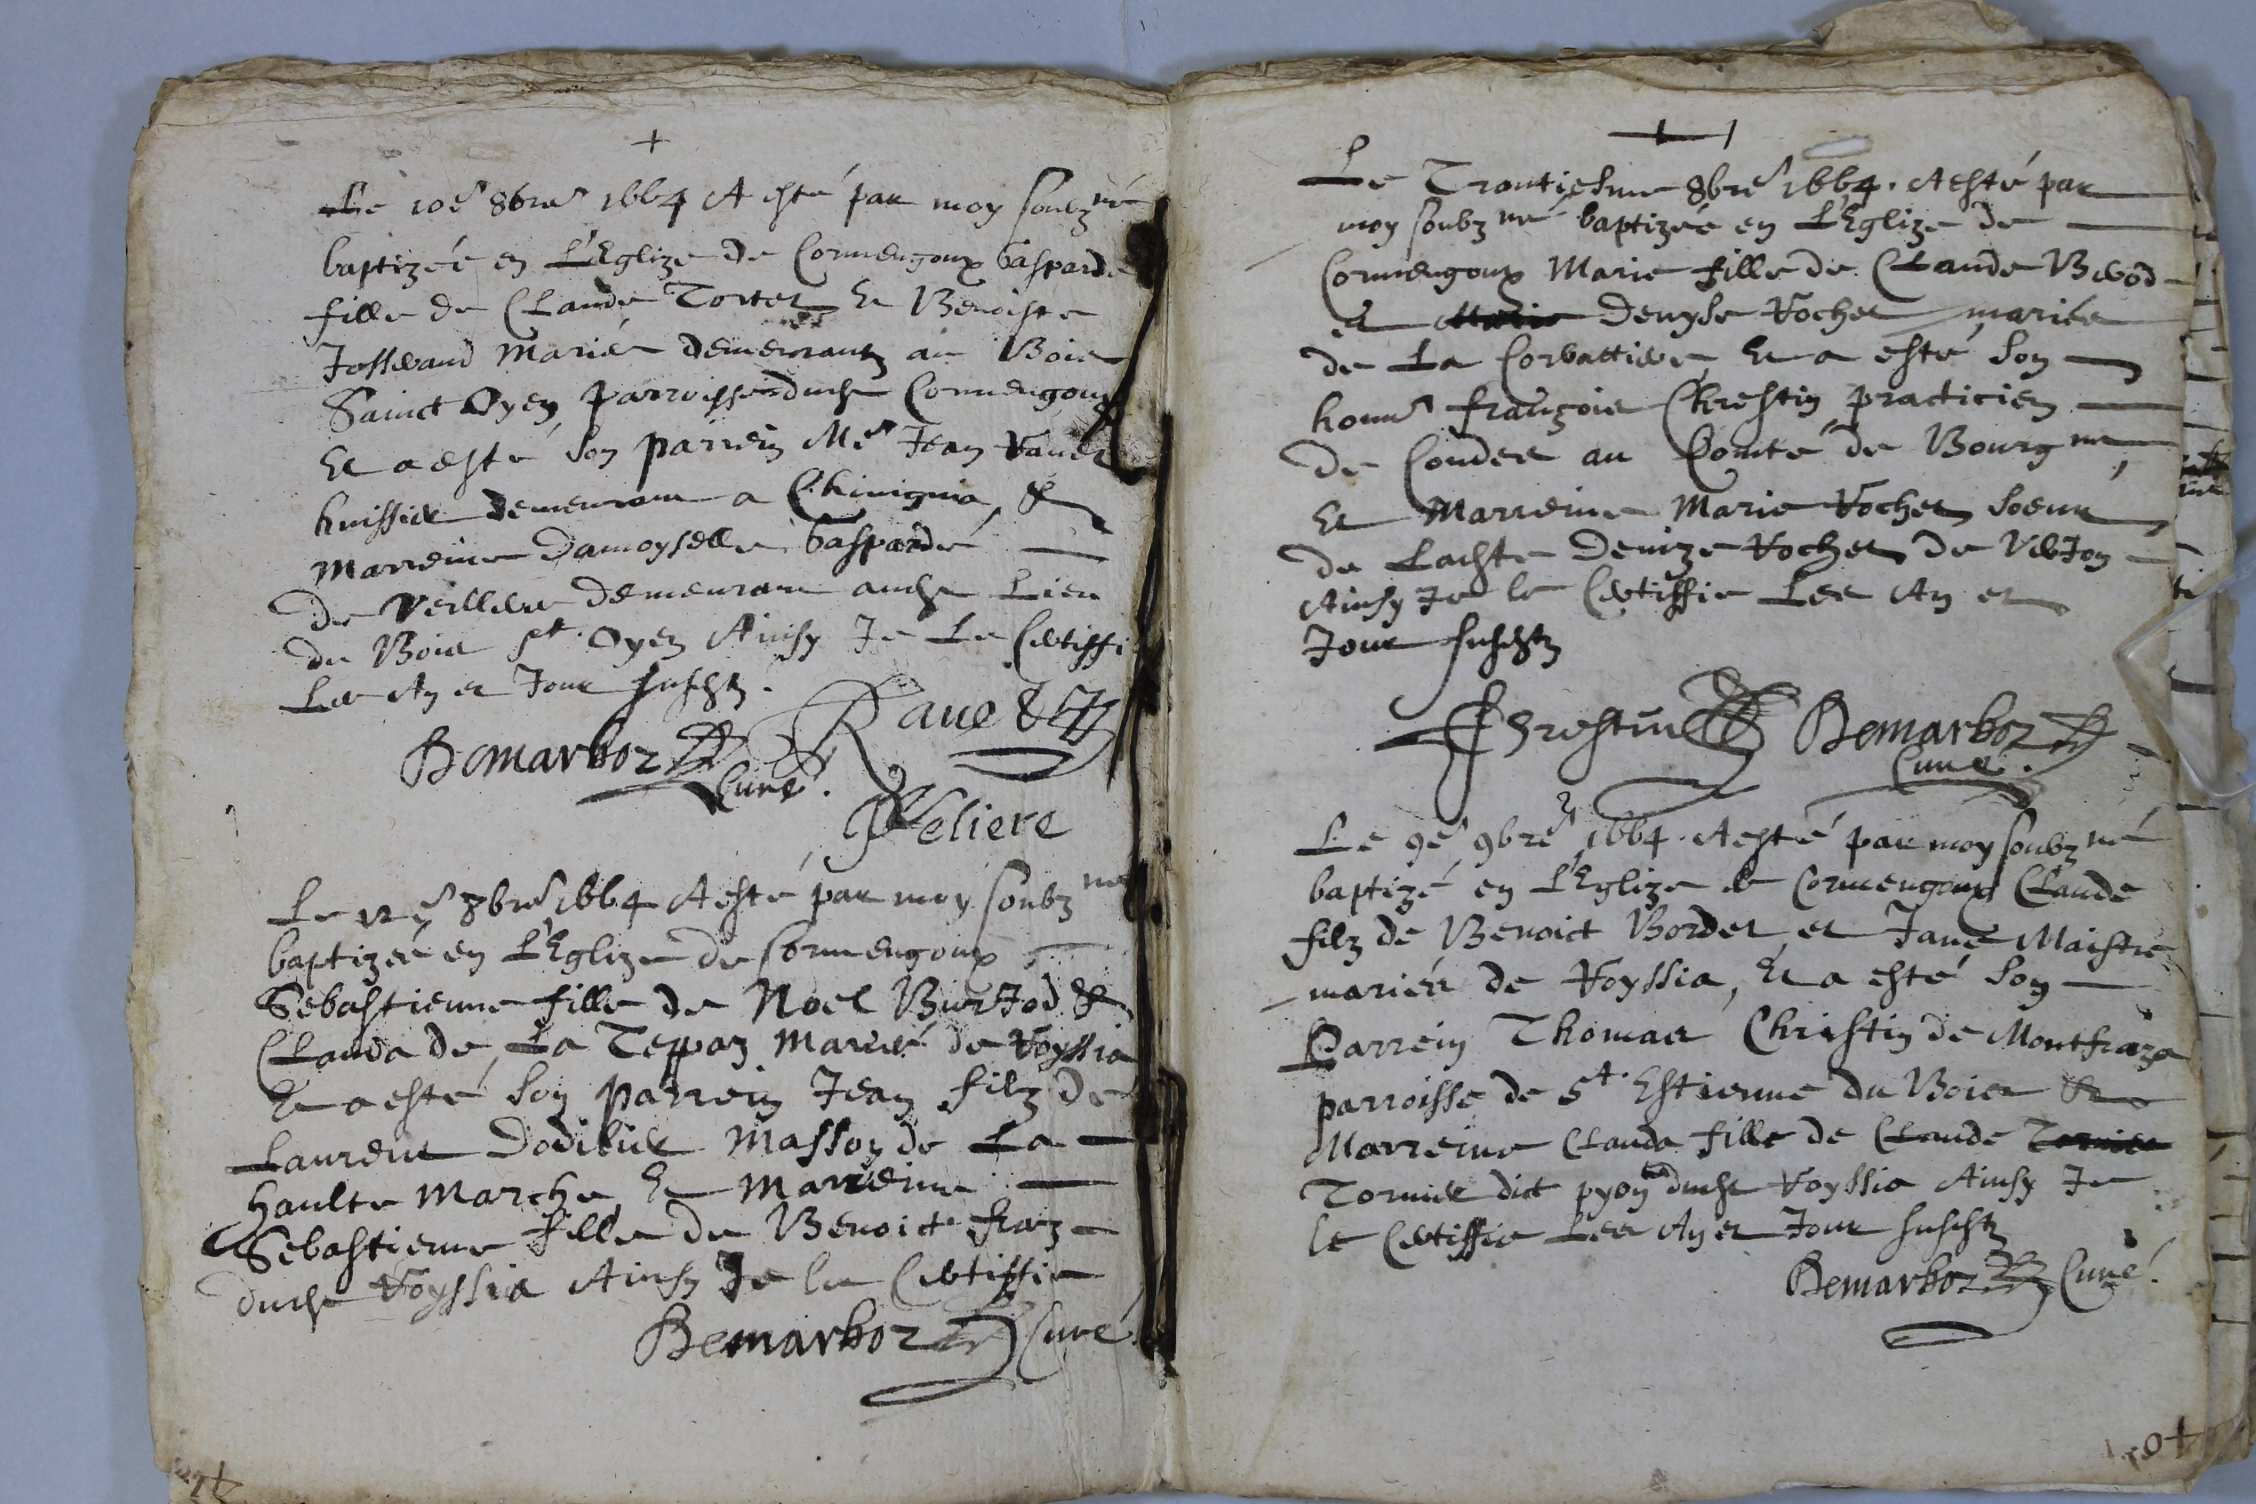 +
Le 10e 8bre 1664 A esté par moy soubzné
baptizée en L'Eglize de Cormengoux Gasparde
fille de Claude Tortet Et Benoiste
Josserand Mariés demeurantz au Bois
Sainct Oyen parroisse dudt Cormengoux
Et a esté son parrein Me Jean Ravet
huissier demeurant a Chivigna, &
Marreine Damoyselle Gasparde
de Veillere demeurant audt Lieu
du Bois st Oyen Ainsy Je Le Certiffie
Les An et Jour susdtz.
Bemarboz Curé. Ravet
Veliere
Le 12e 8bre 1664 A esté par moy soubzné
baptizée en L'Eglize de Cormengoux
Sebastienne fille de Noel Burjod &
Clauda de La Teppaz Mariés de Royssia
Et a esté son parrein Jean filz de
Laurent Dodilier Masson de La
haulte Marche Et Marreine
Sebastienne fille de Benoict
dudt Royssia Ainsy Je le Certiffie
Bemarboz Curé
Le Trantiesme 8bre 1664. A esté par
moy soubzné baptizée en L'Eglize de
Cormengoux Marie fille de Claude
et Denyse Rochet mariés
de La Corbattiere, Et a esté son
honn françois Chrestin practicien
de Condes au Comté de Bourgne,
Et Marreine Marie Rochet soeur
de Ladte Denize Rochet de Verjon
Ainsy Je le Certiffie Les An et
Jour susdtz
Chrestin Bemarboz
Curé.
Le 9e 9bre 1664. A esté par moy soubzné
baptizé en L'Eglize de Cormengoux Claude
filz de Benoict Bordet et Jane Maistre
mariés de Royssia, Et a esté son
Parrein Thomas Christin de Montfraze
parroisse de St. Estienne du Bois &
Marreine Clauda fille de Claude Tornier
Tornier dict pyon dudt Royssia Ainsy Je
le Certiffie Les An et Jour susdtz
Bemarboz Curé.